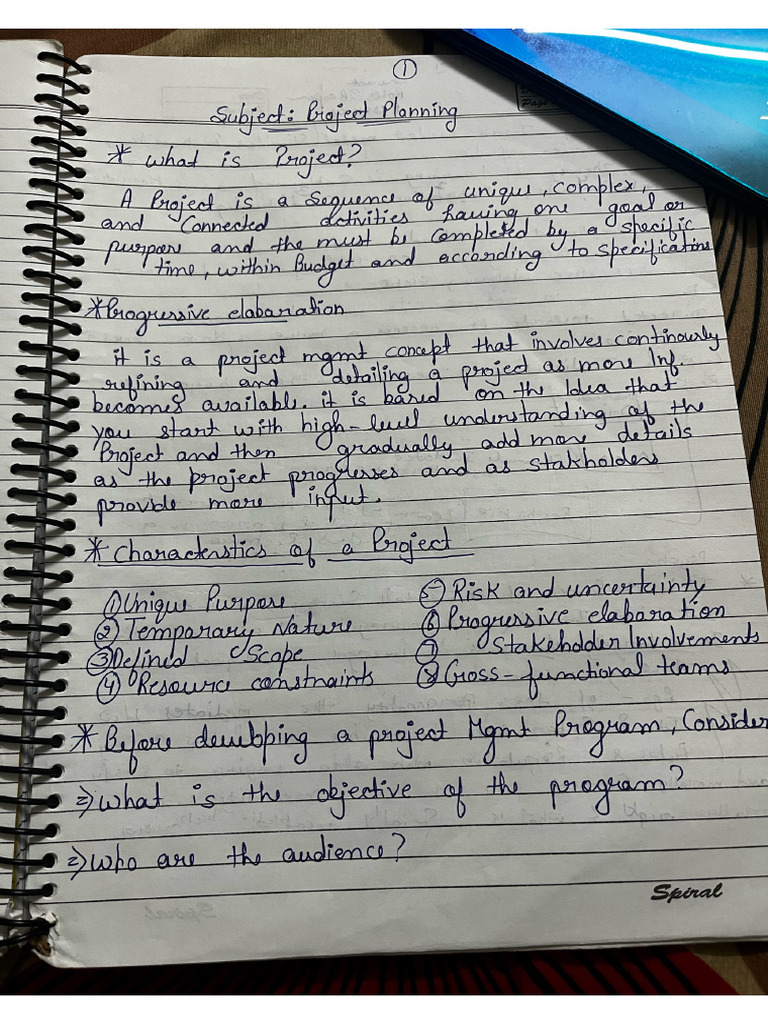 ①
Subject: Project Planning
* What is Project?
A Project is a Sequence of unique, complex,
and Connected activities having one goal or
purpose and the must be completed by a specific
time, within Budget and according to specifications
* Progressive elabaration
it is a project mgmt concept that involves continously
refining and detailing a project as more Inf.
becomes available. it is based on the Idea that
you start with high-level understanding of the
Project and then gradually add more details
as the project progresses and as stakholders
provide more input.
* Characterstics of a Project
① Unique Purpose
② Temporary Nature
③ Defined Scope
④ Resource constraints
⑤ Risk and uncertainty
⑥ Progressive elabaration
⑦ Stakeholder Involvements
⑧ Cross-functional teams
* Before developing a project Mgmt Program, Consider
=> What is the objective of the program?
=> Who are the audience?
Spiral